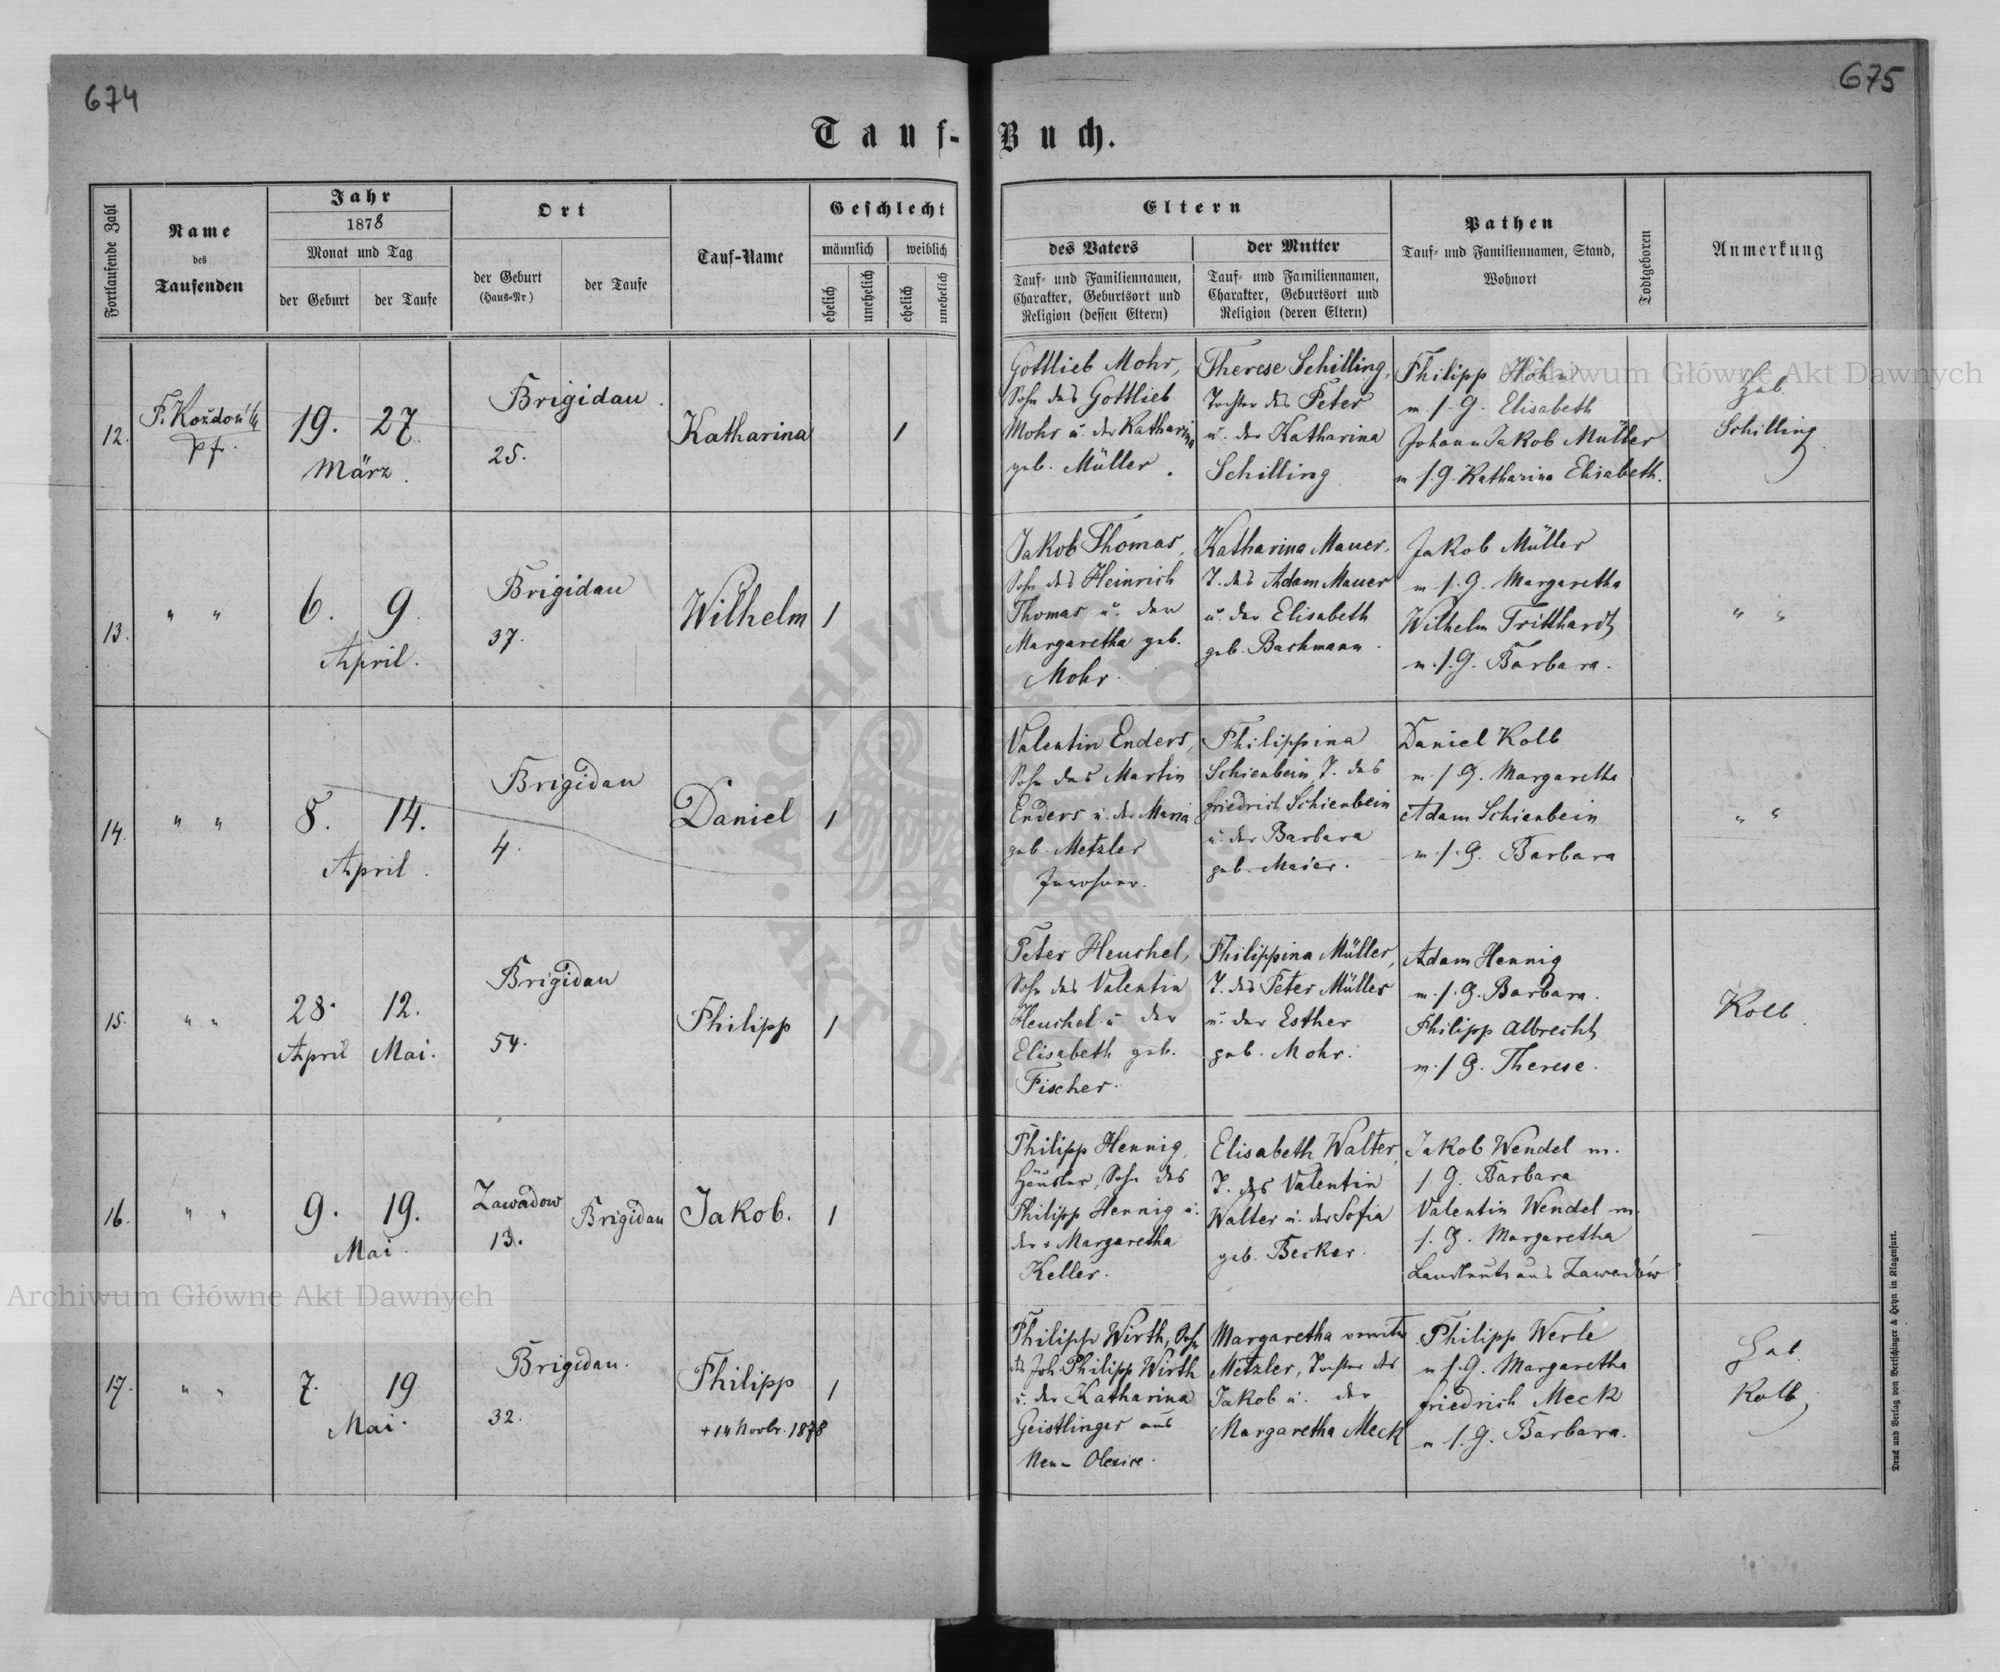 674
675
Tauf-Buch.
Fortlaufende Zahl
Name
des
Taufenden
Jahr
1878
Monat und Tag
der Geburt
der Taufe
Ort
der Geburt
(Haus-Nr)
der Taufe
Tauf-Name
Geschlecht
männlich
weiblich
ehelich
unehelich
ehelich
unehelich
Eltern
des Vaters
Tauf- und Familiennamen,
Charakter, Geburtsort und
Religion (dessen Eltern)
der Mutter
Tauf- und Familiennamen,
Charakter, Geburtsort und
Religion (deren Eltern)
Pathen
Tauf- und Familiennamen, Stand,
Wohnort
Todtgeboren
Anmerkung
12.
pf.
19. 27.
März.
Brigidau.
25.
Katharina
1
Gottlieb Mohr,
Sohn des Gottlieb
Mohr u. der Katharina
geb. Müller.
Therese Schilling,
Tochter des Peter
u. der Katharina
Schilling
Philipp Höhn
m. s. G. Elisabeth
Johann Jakob Müller
m s. G. Katharina Elisabeth.
Heb.
Schilling
13.
" "
6. 9.
April.
Brigidau
37.
Wilhelm
1
Jakob Thomas,
Sohn des Heinrich
Thomas u. der
Margaretha geb.
Mohr.
Katharina Mauer,
T. des Adam Mauer
u. der Elisabeth
geb. Bachmann.
Jakob Müller
m s. G. Margaretha
Wilhelm Tritthardt
m. s. G. Barbara.
" "
14.
" "
8. 14.
April.
Brigidau
4.
Daniel
1
Valentin Enders,
Sohn des Martin
Enders u. der Maria
geb. Metzler
Philippina
Schienbein, T. des
Friedrich Schienbein
u. der Barbara
geb. Maier.
Daniel Kolb
m. s G. Margaretha
Adam Schienbein
m. s. G. Barbara
" "
15.
" "
28. 12.
April Mai.
Brigidau
54.
Philipp
1
Peter Heuchel,
Sohn des Valentin
Heuchel u. der
Elisabeth geb.
Fischer.
Philippina Müller,
T. des Peter Müller
u. der Esther
geb. Mohr.
Adam Hennig
m. s. G. Barbara.
Philipp Albrecht
m. s G. Therese.
Kolb.
16.
" "
9. 19.
Mai.
Zawadow
13.
Brigidau
Jakob.
1
Philipp Hennig,
Häusler, Sohn des
Philipp Hennig u.
der + Margaretha
Keller.
Elisabeth Walter,
T. des Valentin
Walter u. der Sofia
geb. Becker.
Jakob Wendel m.
s G. Barbara
Valentin Wendel m.
s. G. Margaretha
Landleute aus Zawadów
17.
" "
7. 19
Mai.
Brigidau.
32.
Philipp
+ 14 Novbr. 1878
1
Philipp Wirth, Sohn
des Joh. Philipp Wirth
u. der Katharina
Geistlinger aus
Neu-Olexice.
Margaretha verwitw
Metzler, Tochter des
Jakob u. der
Margaretha Meck
Philipp Werle
m s. G. Margaretha
Friedrich Meck
m s. G. Barbara.
Heb.
Kolb
Druck und Verlag von Bertschinger & Heyn in Klagenfurt.
Archiwum Główne Akt Dawnych
Archiwum Główne Akt Dawnych